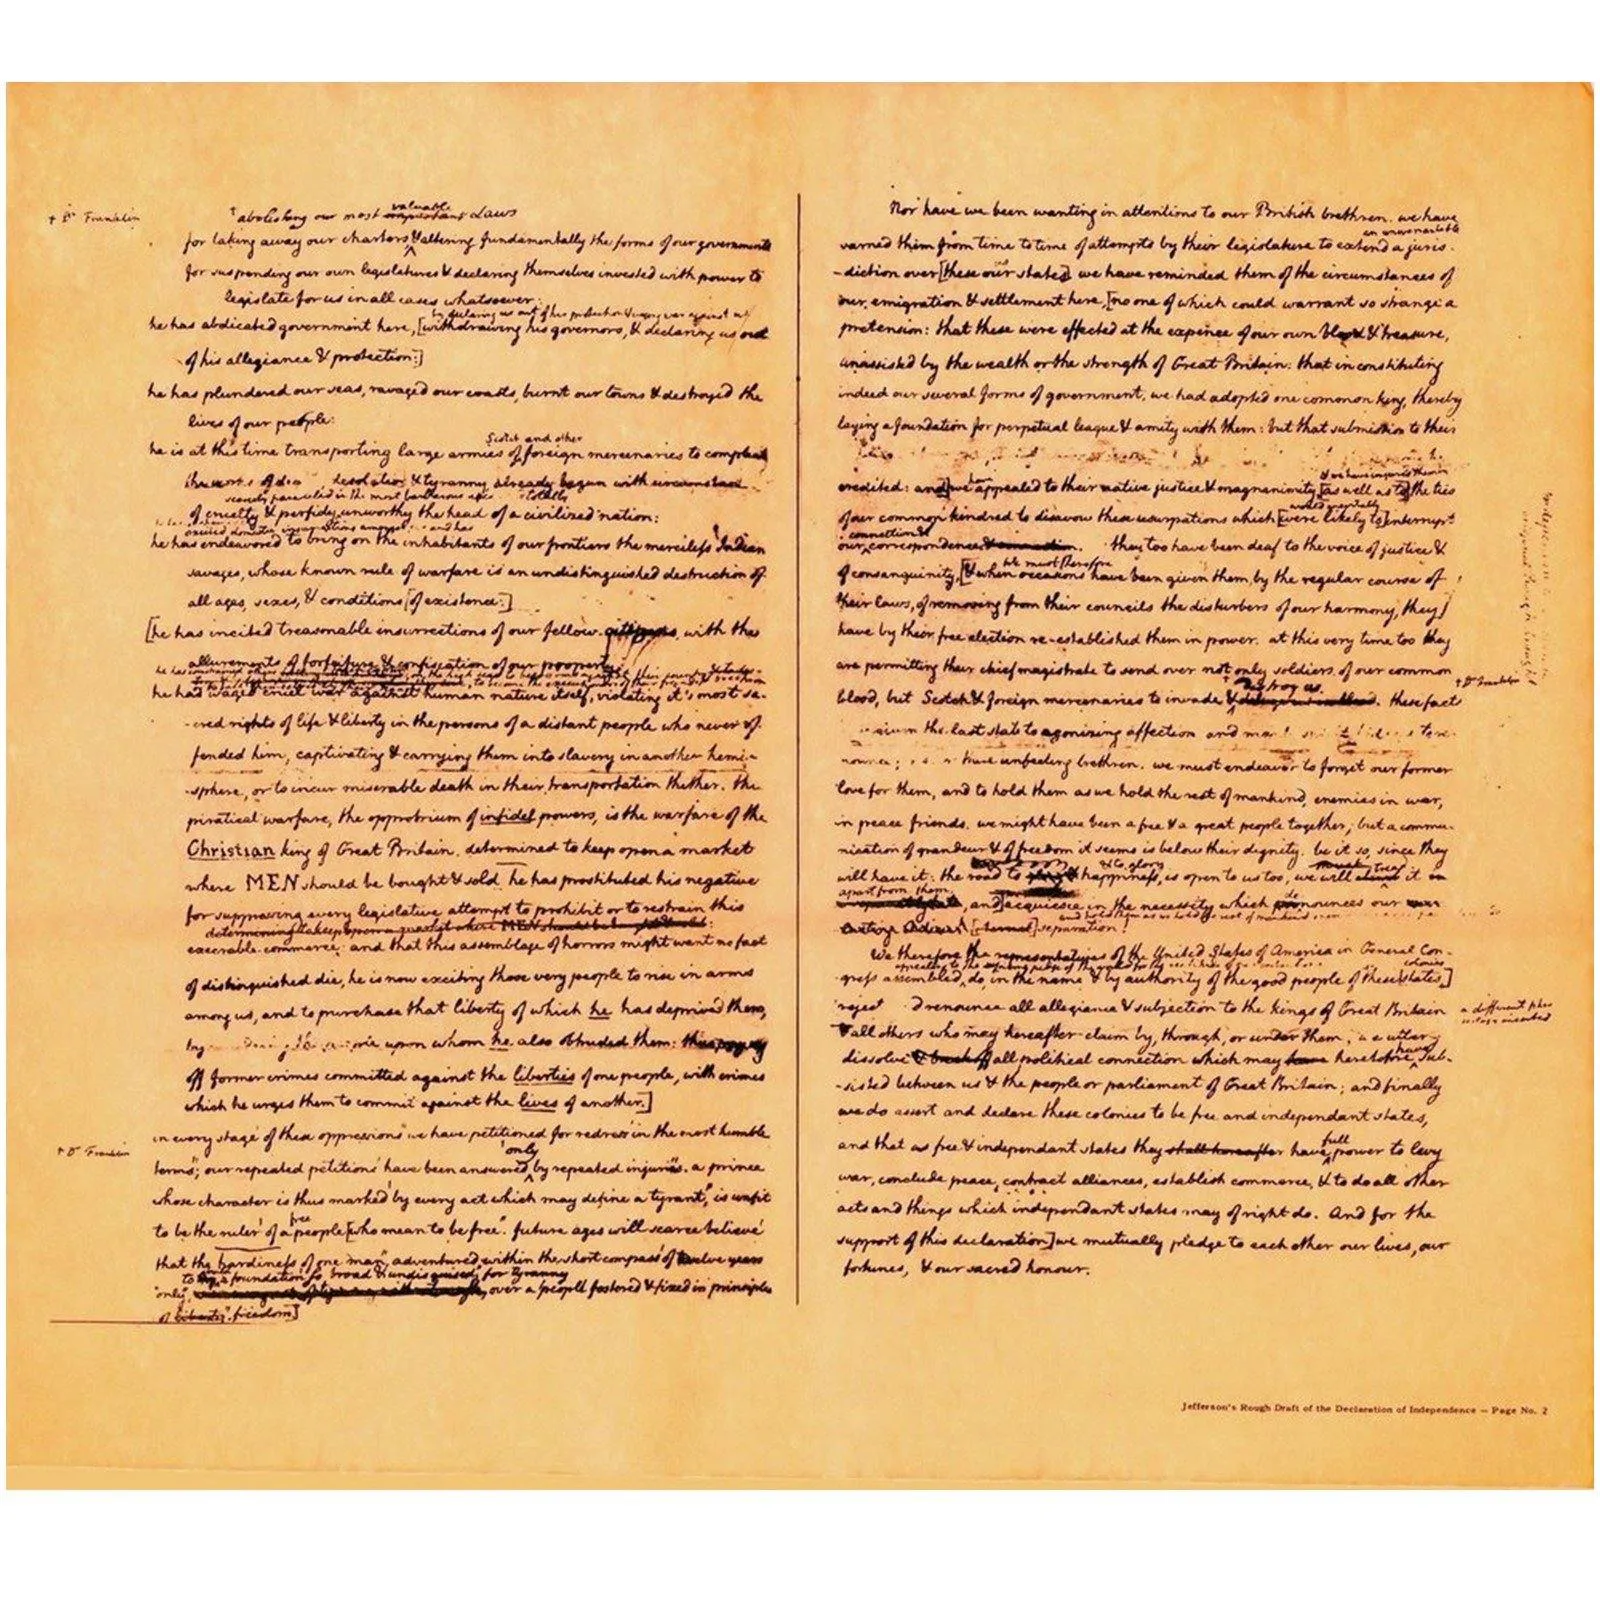 + Dr Franklin
† abolishing our most valuable important Laws
for taking away our charters & altering fundamentally the forms of our governments
for suspending our own legislatures & declaring themselves invested with power to
legislate for us in all cases whatsoever:
by declaring us out of his protection & waging war against us
he has abdicated government here, [withdrawing his governors, & declaring us out
of his allegiance & protection:]
he has plundered our seas, ravaged our coasts, burnt our towns & destroyed the
lives of our people:
Scotch and other
he is at this time transporting large armies of foreign mercenaries to compleat
the works of desolation & tyranny already begun with circumstances
scarcely paralleled in the most barbarous ages totally
of cruelty & perfidy unworthy the head of a civilized nation:
excited domestic insurrections amongst and has
he has endeavored to bring on the inhabitants of our frontiers the merciless Indian
savages, whose known rule of warfare is an undistinguished destruction of
all ages, sexes, & conditions [of existence:]
[he has incited treasonable insurrections of our fellow with the
allurements of forfeiture & confiscation of our property
he has waged cruel war against human nature itself, violating it's most sa-
-cred rights of life & liberty in the persons of a distant people who never of
fended him, captivating & carrying them into slavery in another hemi-
-sphere, or to incur miserable death in their transportation thither. this
piratical warfare, the opprobrium of infidel powers, is the warfare of the
Christian king of Great Britain. determined to keep open a market
where MEN should be bought & sold he has prostituted his negative
for suppressing every legislative attempt to prohibit or to restrain this
determining to keep open a market where MEN should be bought & sold:
execrable commerce: and that this assemblage of horrors might want no fact
of distinguished die, he is now exciting those very people to rise in arms
among us, and to purchase that liberty of which he has deprived them,
by upon whom he also obtruded them: thus paying
off former crimes committed against the liberties of one people, with crimes
which he urges them to commit against the lives of another.]
in every stage of these oppressions we have petitioned for redress in the most humble
+ Dr Franklin
only
terms; our repeated petitions have been answered by repeated injuries. a prince
whose character is thus marked by every act which may define a tyrant, is unfit
free
to be the ruler of a people [who mean to be free. future ages will scarce believe
that the hardiness of one man, adventured within the short compass of twelve years
to a foundation so broad & undisguised, for tyranny
only, over a people fostered & fixed in principles
of liberty freedom]
Nor have we been wanting in attentions to our British brethren. we have
an unwarrantable
warned them from time to time of attempts by their legislature to extend a juris-
-diction over [these our states] we have reminded them of the circumstances of
our emigration & settlement here, [no one of which could warrant so strange a
pretension: that these were effected at the expence of our own blood & treasure,
unassisted by the wealth or the strength of Great Britain: that in constituting
indeed our several forms of government, we had adopted one common king, thereby
laying a foundation for perpetual league & amity with them: but that submission to their
& we have conjured them by
credited: and] we have appealed to their native justice & magnanimity [as well as to] the ties
would inevitably
of our common kindred to disavow these usurpations which [were likely to] interrupt
connection &
our correspondence & connection. they too have been deaf to the voice of justice &
we must therefore
of consanguinity, [& when occasions have been given them, by the regular course of
their laws, of removing from their councils the disturbers of our harmony, they]
have by their free election re-established them in power. at this very time too they
are permitting their chief magistrate to send over not only soldiers of our common
+ Dr Franklin
destroy us
blood, but Scotch & foreign mercenaries to invade & deluge us in blood. these facts
given the last stab to agonizing affection and
these unfeeling brethren. we must endeavor to forget our former
love for them, and to hold them as we hold the rest of mankind, enemies in war,
in peace friends. we might have been a free & a great people together; but a commu-
nication of grandeur & of freedom it seems is below their dignity. be it so, since they
& to glory
will have it: the road to happiness, is open to us too, we will tread it
apart from them
and] acquiesce in the necessity which denounces our
[eternal] separation!
We therefore the representatives of the United States of America in General Con-
colonies
gress assembled, do, in the name & by authority of the good people of these [states]
reject & renounce all allegiance & subjection to the kings of Great Britain
a different
& all others who may hereafter claim by, through, or under them; we utterly
dissolve & break off all political connection which may have heretofore sub-
-sisted between us & the people or parliament of Great Britain; and finally
we do assert and declare these colonies to be free and independant states,
full
and that as free & independant states they shall hereafter have power to levy
war, conclude peace, contract alliances, establish commerce, & to do all other
acts and things which independant states may of right do. And for the
support of this declaration] we mutually pledge to each other our lives, our
fortunes, & our sacred honour.
Jefferson's Rough Draft of the Declaration of Independence — Page No. 2